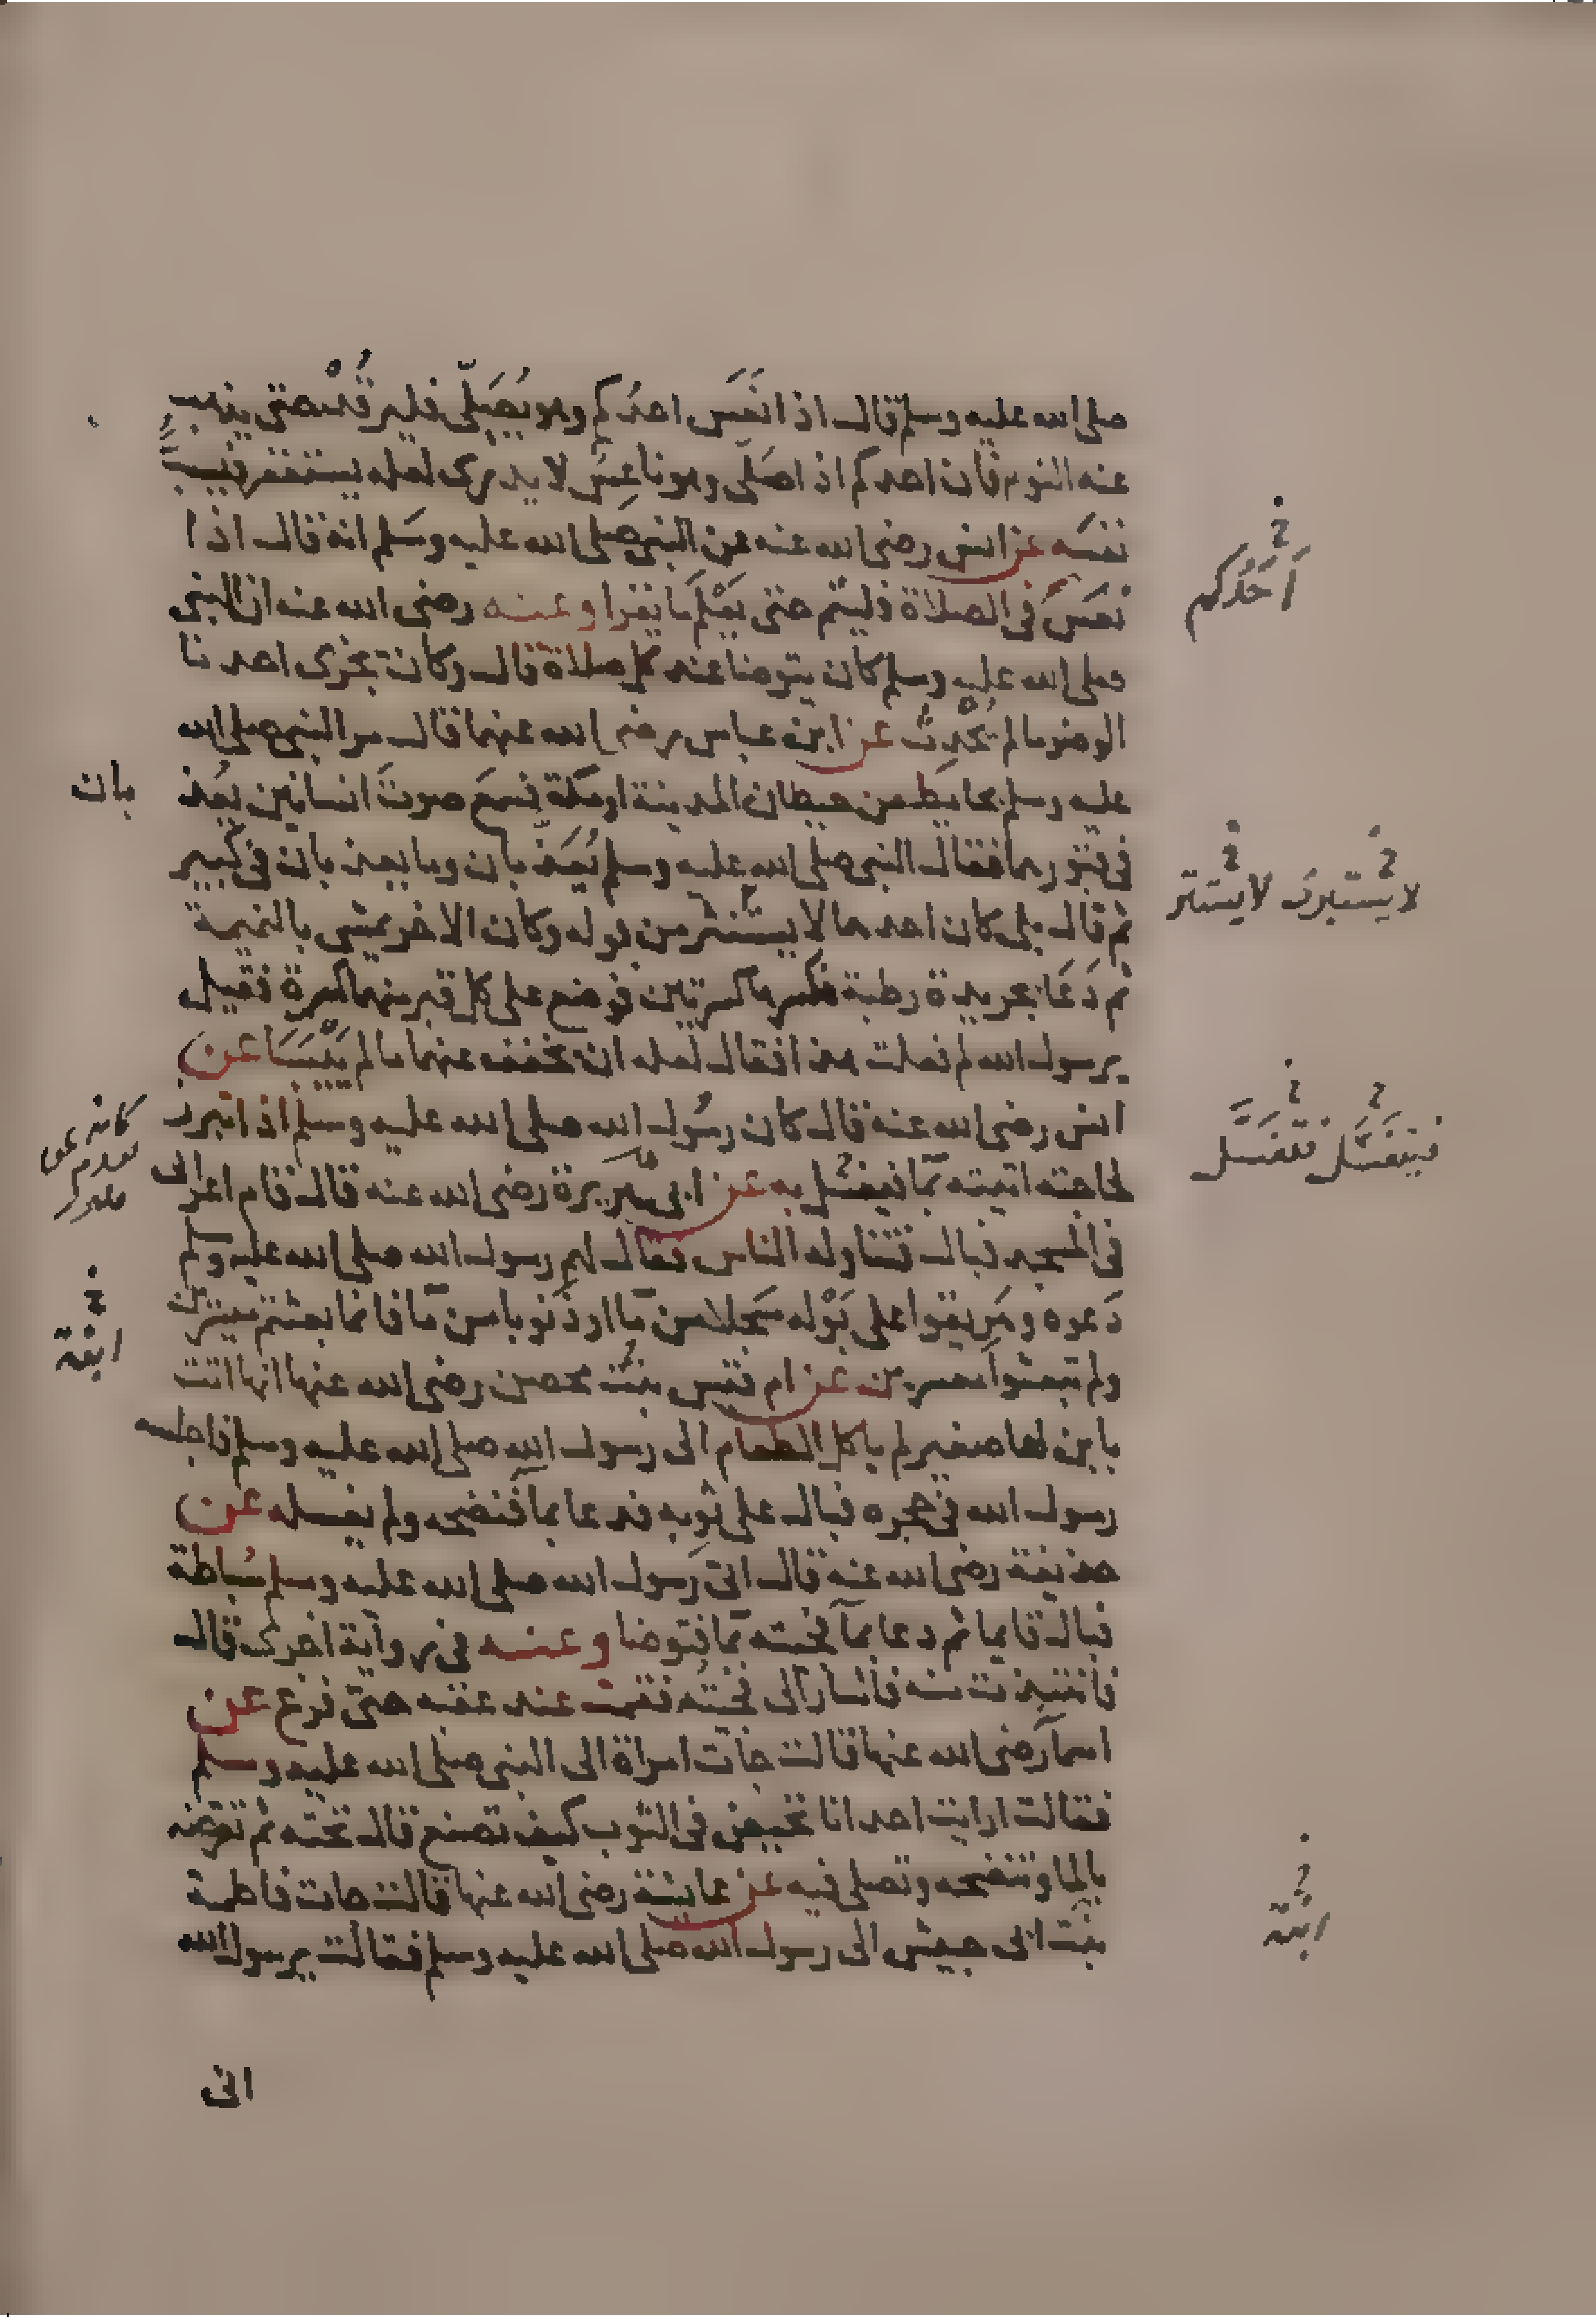 صلى الله عليه وسلم قال اذا نَعَسَ احدُكم وهو يُصَلّى فليرقُدْ حتى يذهب
عنه النوم فان احدكم اذا صَلّى وهو ناعِسٌ لا يدرى لعله يستغفر فيسبَّ
نفسَه عن انس رضى الله عنه عن النبى صلى الله عليه وسَلم انه قال اذا
نَعَسَ فى الصلاة فلينم حتى يعْلم ما يقرا وعنه رضى الله عنه ان النبى
صلى الله عليه وسلم كان يتوضا عند كل صلاة قال وكان يجزى احدنا
الوضو ما لم يُحْدِث عن ابن عباس رضى الله عنهما قال مر النبى صلى الله
عليه وسلم بحايط من حيطان المدينة او مكة فسمع صوتَ انسانين يُعَذ
فى قبورهما فقال النبى صلى الله عليه وسلم يُعَذَّبان وما يعذبان فى كبير
ثم قال بلى كان احدهما لا يستتر من بوله وكان الاخر يمشى بالنميمة
ثم دَعَا بجريدة رطبة فكسرها كسرتين فوضع على كل قبر منهما كسرة فقيل
يرسول الله لم فعلت هذا فقال لعله ان يخفف عنهما ما لم يَيْبَسَا عن
انس رضى الله عنه قال كان رسُول الله صلى الله عليه وسلم اذا تبرز
لحاجته اتيته بمآ فيغسل به عن ابى هريرة رضى الله عنه قال قام اعرابى
فى المسجد فبال فتناوله الناس فقال لهم رسول الله صلى الله عليه وسلم
دَعوه وهَريقوا على بَوْله سَجلا من مآ او ذنوبا من مآ فانما بعثتم ميسرين
ولم تبعثوا معسرين عن ام قيس بنت محصن رضى الله عنها انها اتت
بابن لها صغير لم ياكل الطعام الى رسول الله صلى الله عليه وسلم فاجلسه
رسول الله فى حجره فبال على ثوبه فدعا بمآ فنضحه ولم يغسله عن
حذيفة رضى الله عنه قال اتى رَسول الله صلى الله عليه وسلم سُباطة
فبال قايما ثم دعا بمآ فجئته بمآ فتوضا وعنه فى رواية اخرى قال
فانتبذت منه فاشار الى فجئتُه فقمت عند عقبه حتى فرغ عن
اسمآ رضى الله عنها قالت جآت امراة الى النبى صلى الله عليه وسلم
فقالت ارايت احدانا تحيض فى الثوب كيف تصنع قال تحته ثم تقرصه
بالما وتنضحه وتصلى فيه عن عايشة رضى الله عنها قالت جات فاطمة
بنت ابى حبيش الى رسول الله صلى الله عليه وسلم فقالت يرسول الله
انى
أَحَدُكم
بان
لا يستبرئ لا يستتر
فيتغسَّل فتغسَّل
ابنة
ابنة